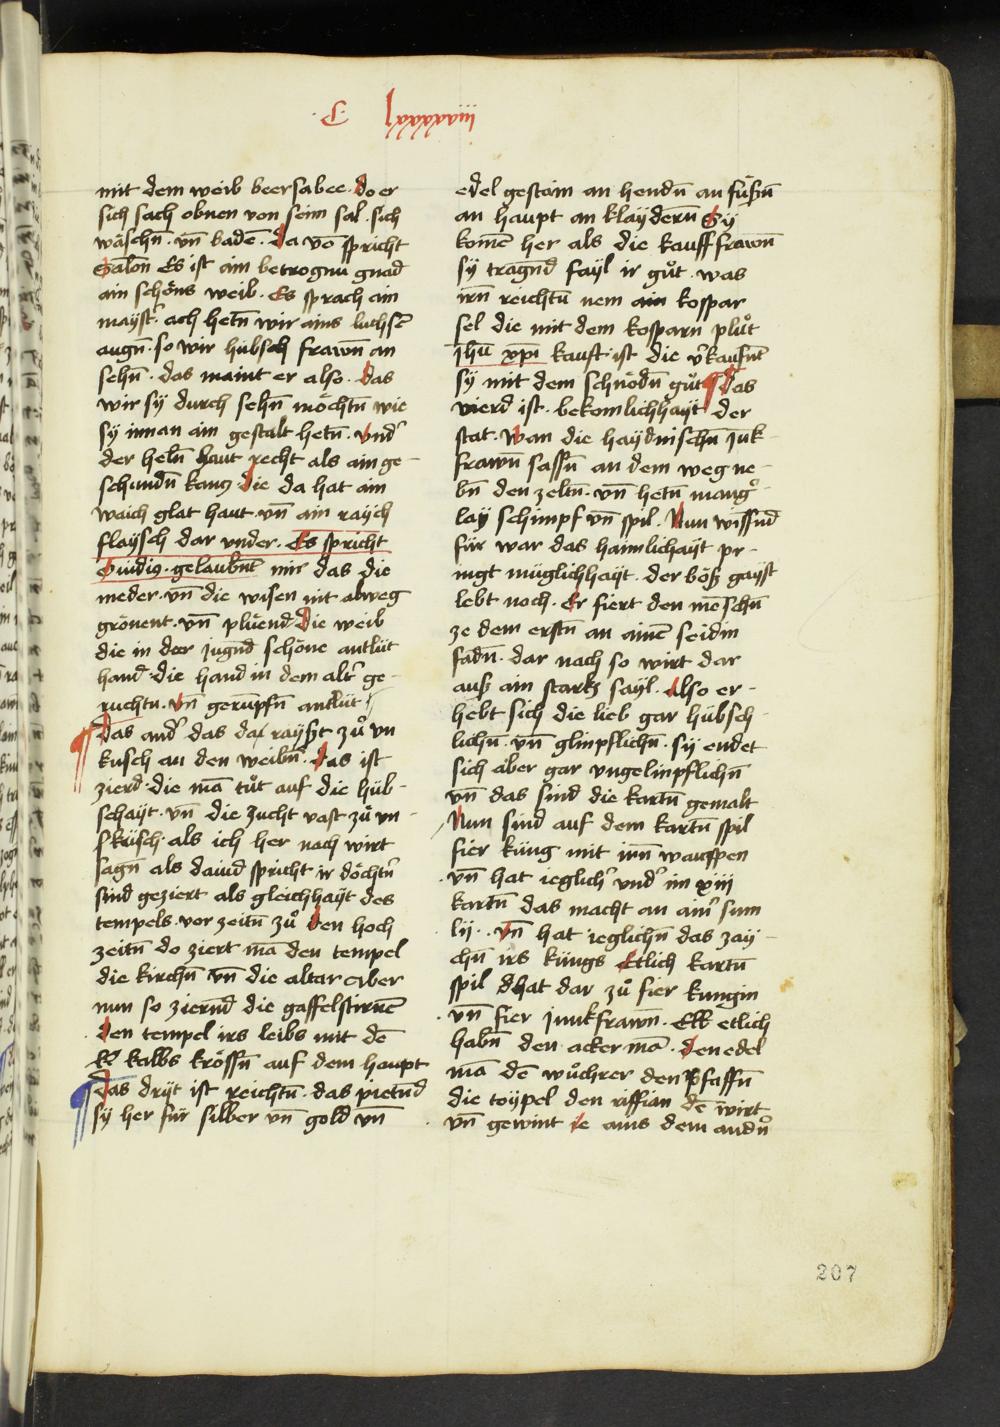 C lxxxxxviii
mit dem weib beersabee. do er
sich sach obnen von seim sal. sich
wäschn̄. vn̄ badē. da vō spricht
Salon Es ist ain betrognu gnad
ain schöns weib. Es sprach ain
mayst' ach hetn̄ wir ains luchsē
augn̄. so wir hübsch frawn̄ an
sehn̄. das maint er also. das
wir sy durch sehn̄ möchtn̄ wie
sy innan ain gestalt hetn̄. vnd'
der heln̄ haut recht als ain ge-
schundn̄ kang die da hat ain
waich glat haut. vn̄ ain raych
flaysch dar vnder. Es spricht
Ouidi9. gelaubnt mir das die
meder. vn̄ die wisen nit alweg
grönent. vn̄ plüend Die weib
die in der jugnd schöne antlüt
hand die hand in dem alt' ge-
ruchtn. vn̄ gerupfn̄ antlüt
das and' das da rayßt zů vn
kusch an den weibn̄. das ist
zierd. die mā tůt auf die hüb-
schayt. vn̄ die zucht vast zů vn-
kusch. als ich her nach wirt
sagn̄ als dauid spricht ir döchtn̄
sind geziert als gleichhayt des
tempels. vor zeitn̄ zů den hoch
zeitn̄ do ziert mā den tempel
die kirchn̄ vn̄ die altar aber
nun so ziernd die gaffelstirnē
den tempel irs leibs mit dē
kalbs krössn̄ auf dem haupt
das dryt ist reichtn̄. das pietnd
sy her für silber vn̄ gold vn̄
edel gestain an hendn̄ an füßn̄
an haupt an klaydern̄ Sy
komē her als die kauff frawn̄
sy tragnd fayl ir gůt. was
irn̄ reichtū nem ain kospar
sel die mit dem kosparn plůt
jhū xp̄i kauft ist die v'kaufnt
sy mit dem schnödn̄ gůt Das
vierd ist. bekomlichhayt der
stat. Wan die haydnischn̄ juk-
frawn̄ sassn̄ an dem weg ne-
bn̄ den zeltn̄. vn̄ hetn̄ mang'-
lay schimpf vn̄ spil. Nun wissnd
für war das haimlichayt pr-
ingt müglichhayt. der böß gayst
lebt noch. Er fiert den mēschn̄
ze dem erstn̄ an ainē seidin
fadn̄. dar nach so wirt dar
auß ain starks sayl. Also er-
hebt sich die lieb gar hübsch
lichn̄. vn̄ glinpflichn̄. sy endet
sich aber gar vngelinpflichn̄
vn̄ das sind die kartn̄ gemalt
Nun sind auf dem kartn̄ spil
fier küng mit irn̄ wauppen
vn̄ hat ieglich' vnd' im xiii
kartn̄ das macht an ain' sum
lij. vn̄ hat ieglichn̄ das zay-
chn̄ irs küngs Etlich kartn̄
spil hat dar zů fier kungin
vn̄ fier junkfrawn̄. etlich
habn̄ den acker mā. den edel
mā dē wůchrer den pfaffn̄
die toypel den riffian dē wirt
vn̄ gewint ie ains dem andn̄
207